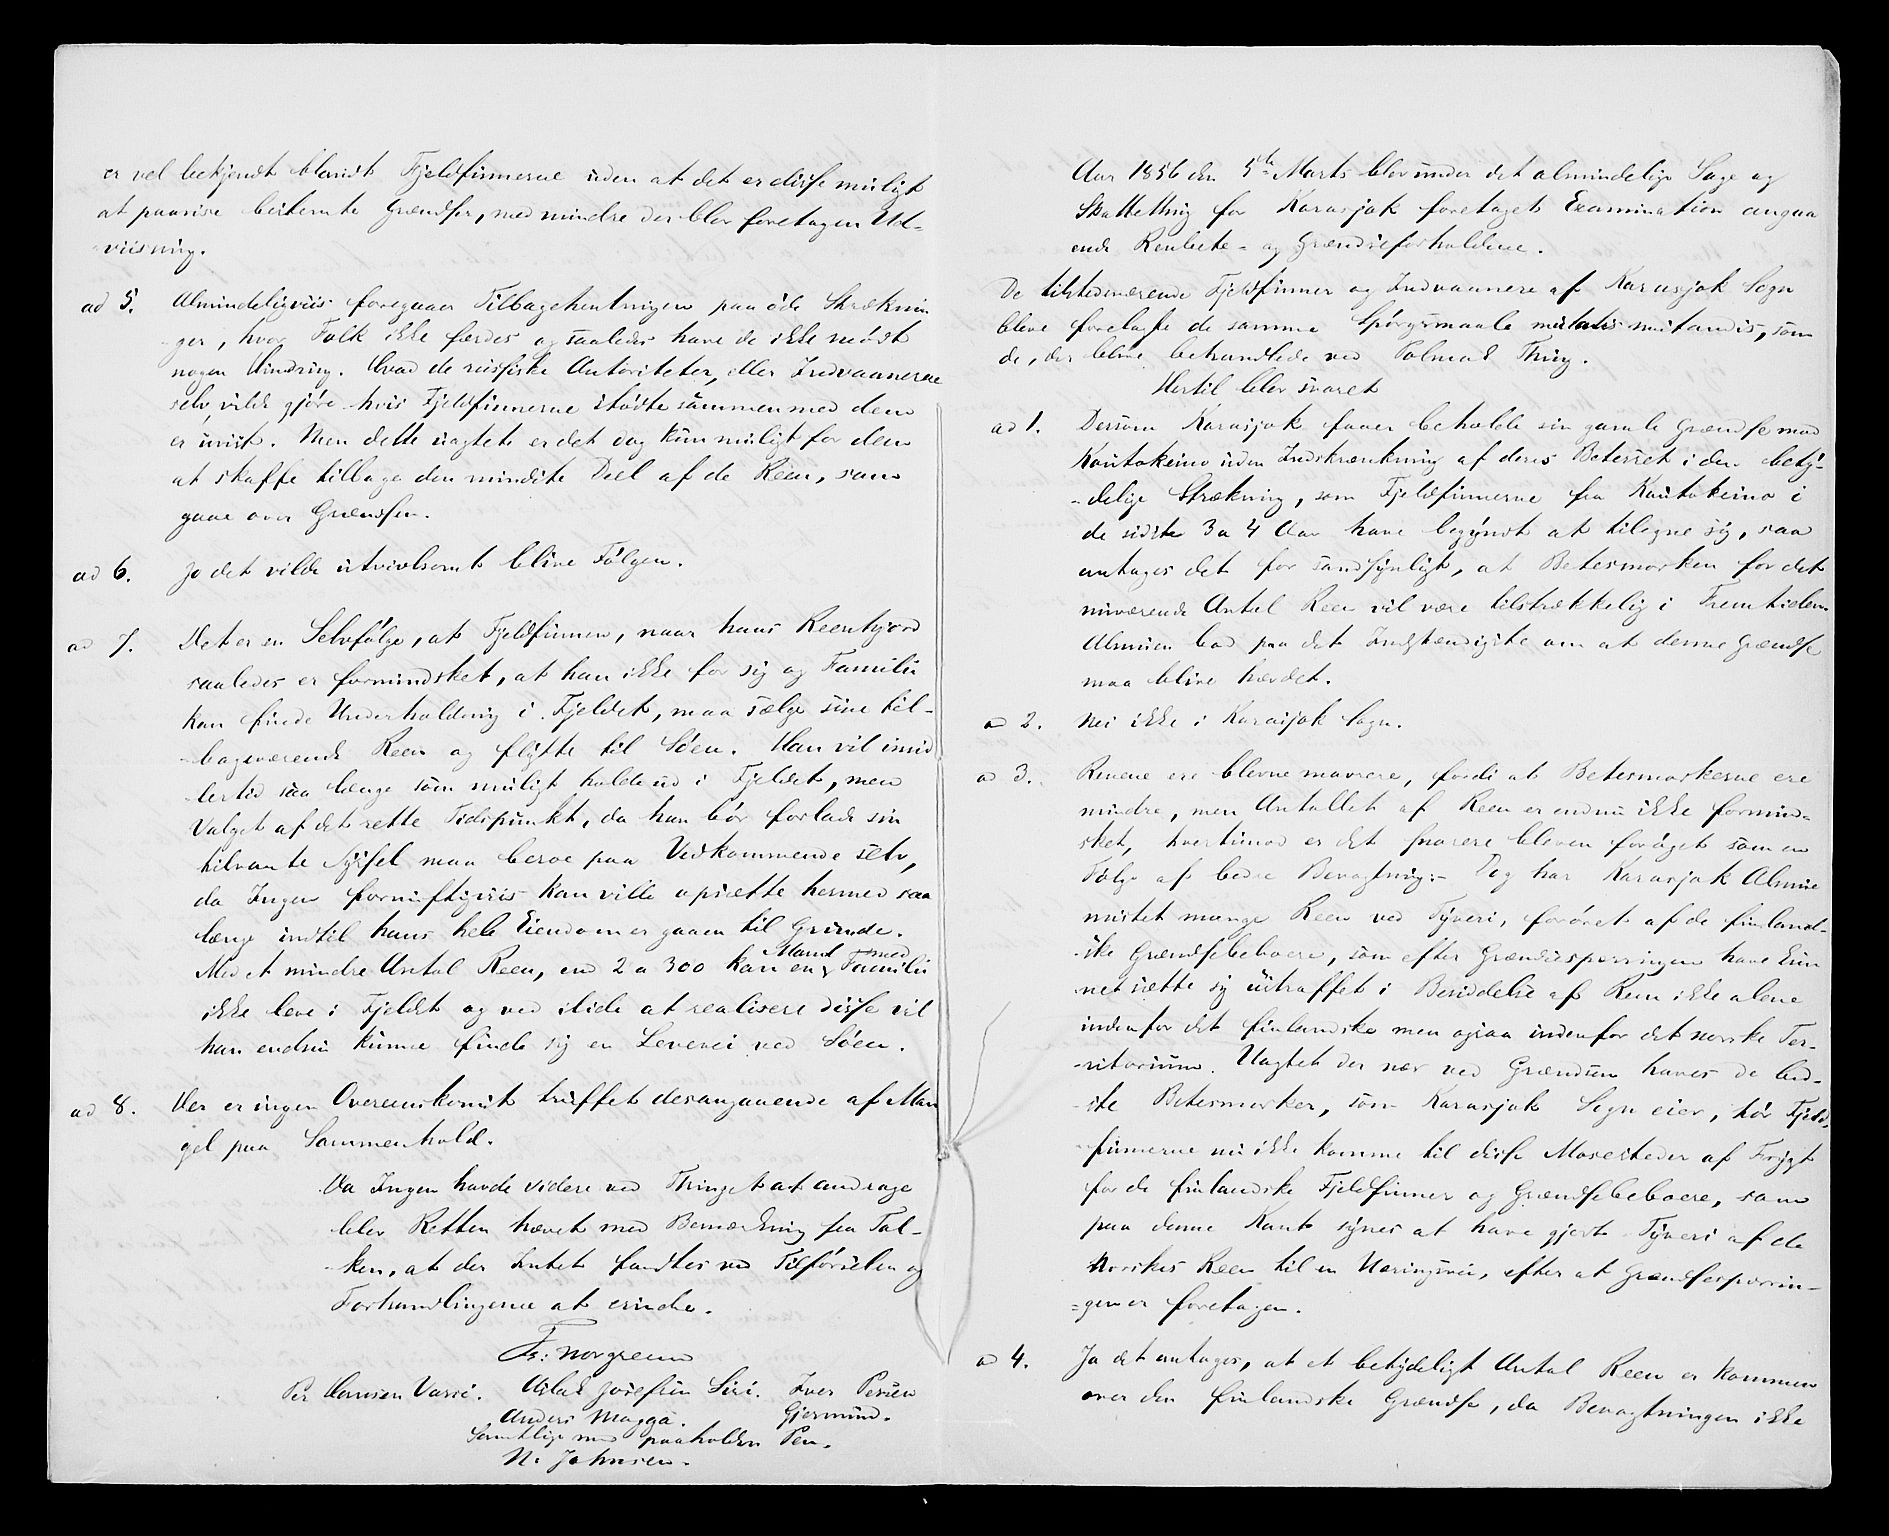 er vel bekjendt blandt Fjeldfinnerne uden at det er disse muligt
at paavise bestemte Grændser, med mindre der blev foretagen Ud-
viisning.
ad 5. Almindeligviis foregaaer Tilbagehentningen paa øde Stræknin
ger, hvor Folk ikke færdes og saaledes have de ikke mødt
nogen Hindring. Hvad de russiske Autoriteter, eller Indvaanerne
selv, vilde gjøre hvis Fjeldfinnerne stødte sammen med dem
er uvist. Men dette uagtet er det dog kun muligt for dem
at skaffe tilbage den mindste Deel af de Reen, som
gaae over Grændsen.
ad 6. Jo det vilde utvivlsomt blive Følgen.
ad 7. Det er en Selvfølge, at Fjeldfinnen, naar hans Reenhjord
saaledes er formindsket, at han ikke for sig og Familie
kan finde Underholdning i Fjeldet, maa sælge sine til-
bageværende Reen og flytte til Søen. Han vil imid
lertid saa længe som muligt holde ud i Fjeldet, men
Valget af det rette Tidspunkt, da han bør forlade sin
tilvante Syssel maa beroe paa Vedkommende selv,
da Ingen fornuftigviis kan ville opsætte hermed saa
længe indtil hans hele Eiendom er gaaen til Grunde.
Med et mindre Antal Reen, end 2 a 300 kan en Mand med Familie
ikke leve i Fjeldet og ved itide at realisere disse vil
han endnu kunne finde sig en Levevei ved Søen.
ad 8. Der er ingen Overeenskomst truffet desangaaende af Man
gel paa Sammenhold.
Da Ingen havde videre ved Thinget at andrage
blev Retten hævet med Bemærkning fra Tol-
ken, at der Intet fandtes ved Tilførselen og
Forhandlingerne at erindre.
Fr: Norgreen
Per Hansen Varsi. Aslak Josefsen Siri. Iver Persen
Anders Magga. Gjermund.
Samtlige med paaholden Pen.
N. Johnsen.
Aar 1856 den 5te Marts blev under det almindelige Sage og
Skattething for Karasjok foretaget Examination angaa
ende Renbete- og Grændseforholdene.
De tilstedeværende Fjeldfinner og Indvaanere af Karasjok Sogn
bleve forelagte de samme Spørgsmaale mutatis mutandis, som
de, der bleve behandlede ved Polmak Thing.
Hertil blev svaret
ad 1. Dersom Karasjok faaer beholde sin gamle Grændse mod
Koutokeino uden Indskrænkning af deres Betesret i den bety-
delige Strækning, som Fjeldfinnerne fra Koutokeino i
de sidste 3 a 4 Aar have begyndt at tilegne sig, saa
antages det for sandsynligt, at Betesmarken for det
nuværende Antal Reen vil være tilstrækkelig i Fremtiden.
Almuen bad paa det Indstændigste om at denne Grændse
maa blive hævdet.
a 2. Nei ikke i Karasjok Sogn.
a 3. Renene ere blevne magrere, fordi at Betesmarkerne ere
mindre, men Antallet af Reen er endnu ikke formind-
sket, hvertimod er det snarere bleven forøget som en
Følge af bedre Bevogtning. - Dog har Karasjok Almue
mistet mange Reen ved Tyveri, forøvet af de finland-
ske Grændsebeboere, som efter Grændsespærringen have kun
net sætte sig ustraffet i Besiddelse af Reen ikke alene
indenfor det finlandske men ogsaa indenfor det norske Ter-
ritorium. Uagtet der nær ved Grændsen haves de bed-
ste Betesmarker, som Karasjok Sogn eier, tør Fjeld-
finnerne nu ikke komme til disse Mosesteder af Frygt
for de finlandske Fjeldfinner og Grændsebeboere, som
paa denne Kant synes at have gjort Tyveri af de
Norskes Reen til en Næringsvei, efter at Grændsespærrin-
gen er foretagen.
a 4. Ja det antages, at et betydeligt Antal Reen er kommen
over den finlandske Grændse, da Bevogtningen ikke